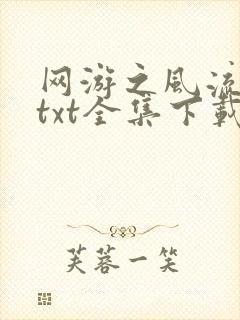 网游之风流
txt全集下载
芙蓉一笑